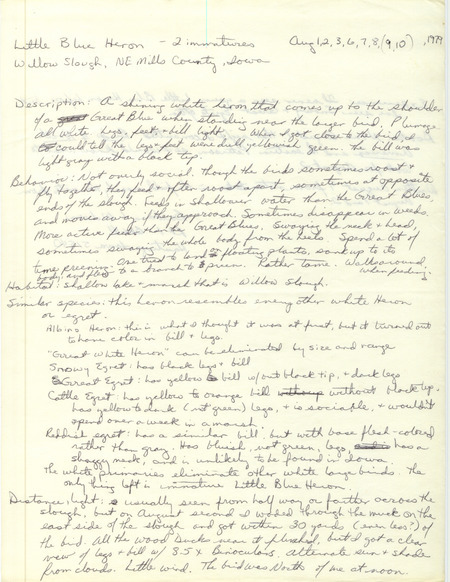 Little Blue Heron - 2 immatures Aug 1,2,3,6,7,8,(9,10), 1979
Willow Slough, NE Mills County, Iowa
Description: A shining white heron that comes up to the shoulder
of a Great Blue when standing near the larger bird. Plumage
all white legs, feet + bill light. When I got close to the bird, I
could tell the legs + feet were dull yellowish green. The bill was
light gray with a black tip.
Behaviour: Not overly social. Though the birds sometimes roost +
fly together, they feed + often roost apart, sometimes at opposite
ends of the slough. Feeds in shallower water than the Great Blues,
and moves away if they approach. Sometimes disappear in weeds.
More active feeder than the Great Blues. Swaying the neck + head,
sometimes swaying the whole body from the heels. Spend a lot of
time preening. One tried to land on floating plants, sank up to its
body, and flew to a branch to preen. Rather tame. Walk around
when feeding.
Habitat: shallow lake + marsh that is Willow Slough.
Similar species: this heron resembles every other white Heron
or egret.
Albino Heron: this is what I thought it was at first, but it turned out
to have color in bill + legs.
"Great White Heron" can be eliminated by size and range
Snowy Egret: has black legs + bill
Great Egret: has yellow bill w/out black tip, + dark legs
Cattle Egret: has yellow to orange bill without black tip.
has yellow to dark (not green) legs, + is sociable, + wouldn't
spend over a week in a marsh.
Reddish egret: has a similar bill but with base flesh-colored
rather than gray. Has bluish, not green, legs, has a
shaggy neck, and is unlikely to be found in Iowa.
The white primaries eliminate other white large birds. The
only thing left is immature Little Blue Heron.
Distance, light: usually seen from half way or farther across the
slough, but on August second I waded through the muck on the
east side of the slough and got within 30 yards (even less?) of
the bird. All the Wood Ducks near it flushed, but I got a clear
view of legs + bill w/ 8.5x Binoculars. Alternate sun + shade
from clouds. Little wind. The bird was North of me at noon.